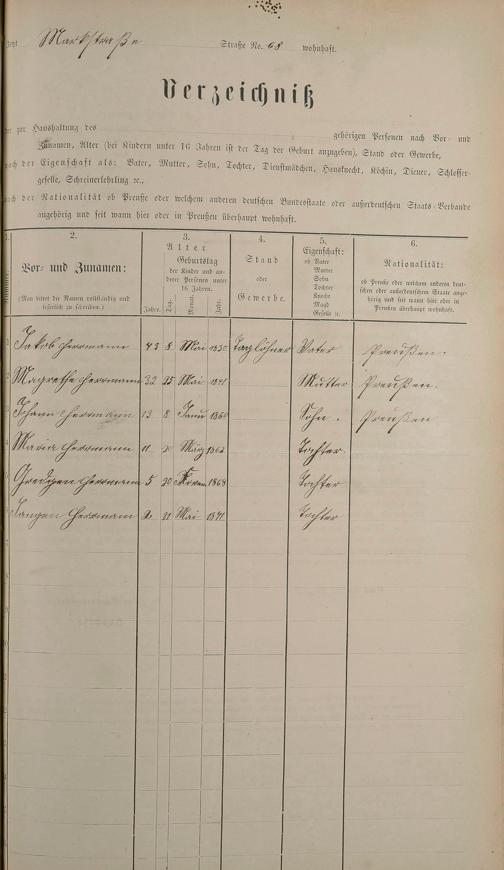 Jetzt Markstraße Straße No. 68 wohnhaft.
Verzeichniß
der zur Haushaltung des gehörigen Personen nach Vor- und
Zunamen, Alter (bei Kindern unter 16 Jahren ist der Tag der Geburt anzugeben), Stand oder Gewerbe,
nach der Eigenschaft als: Vater, Mutter, Sohn, Tochter, Dienstmädchen, Hausknecht, Köchin, Diener, Schlosser-
geselle, Schreinerlehrling ꝛc.,
nach der Nationalität ob Preuße oder welchem anderen deutschen Bundesstaate oder außerdeutschem Staats-Verbande
angehörig und seit wann hier oder in Preußen überhaupt wohnhaft.
1. 2. 3. 4. 5. 6.
Nummer.
Vor- und Zunamen:
(Man bittet die Namen vollständig und
leserlich zu schreiben.)
Alter
Geburtstag
der Kinder und an-
derer Personen unter
16 Jahren.
Jahre. Tag. Monat. Jahr.
Stand
oder
Gewerbe.
Eigenschaft:
ob Vater
Mutter
Sohn
Tochter
Knecht
Magd
Geselle u.
Nationalität:
ob Preuße oder welchem anderen deut-
schen oder außerdeutschem Staate ange-
hörig und seit wann hier oder in
Preußen überhaupt wohnhaft.
Jakob Herrmann 43 8 Mai 1830 Taglöhner Vater Preußen.
Magrethe Herrmann 32 25 Mai 1841 Mutter Preußen.
Johann Herrmann 13 8 Janu 1860 Sohn. Preußen
Maria Herrmann 11 März 1862 Tochter.
Herrmann 5 20 Novem 1868 Tochter
Herrmann 2 21 Mai 1871 Tochter